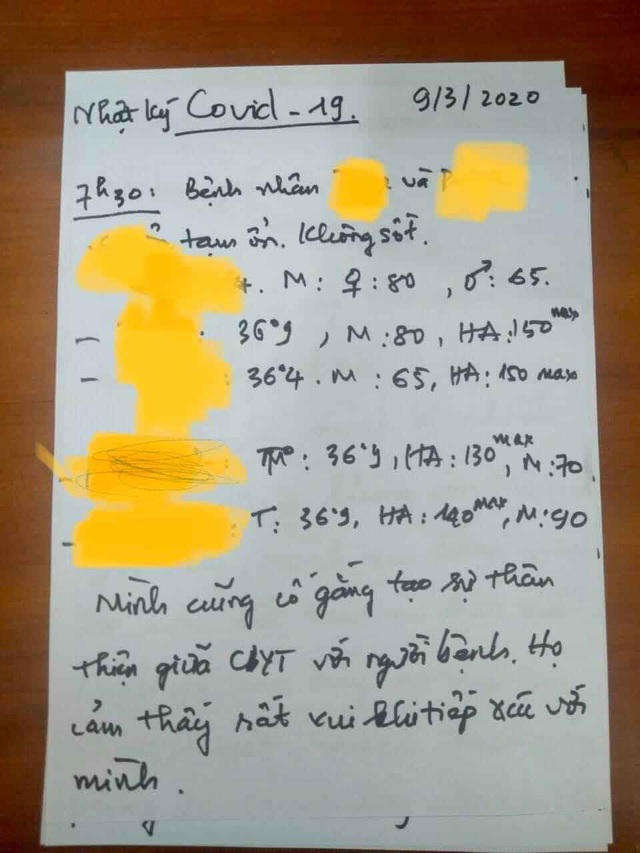 Nhật ký Covid - 19. 9/3/2020
7h30: Bệnh nhân và
tạm ổn. Không sốt.
M: ♀: 80, ♂: 65.
- 36°9, M: 80, HA: 150 max
- : 36°4. M: 65, HA: 150 max
: T°: 36°9, HA: 130 max, M: 70.
- : T: 36°9, HA: 140 max, M: 90
Mình cũng cố gắng tạo sự thân
thiện giữa CBYT với người bệnh. Họ
cảm thấy rất vui khi tiếp xúc với
mình.